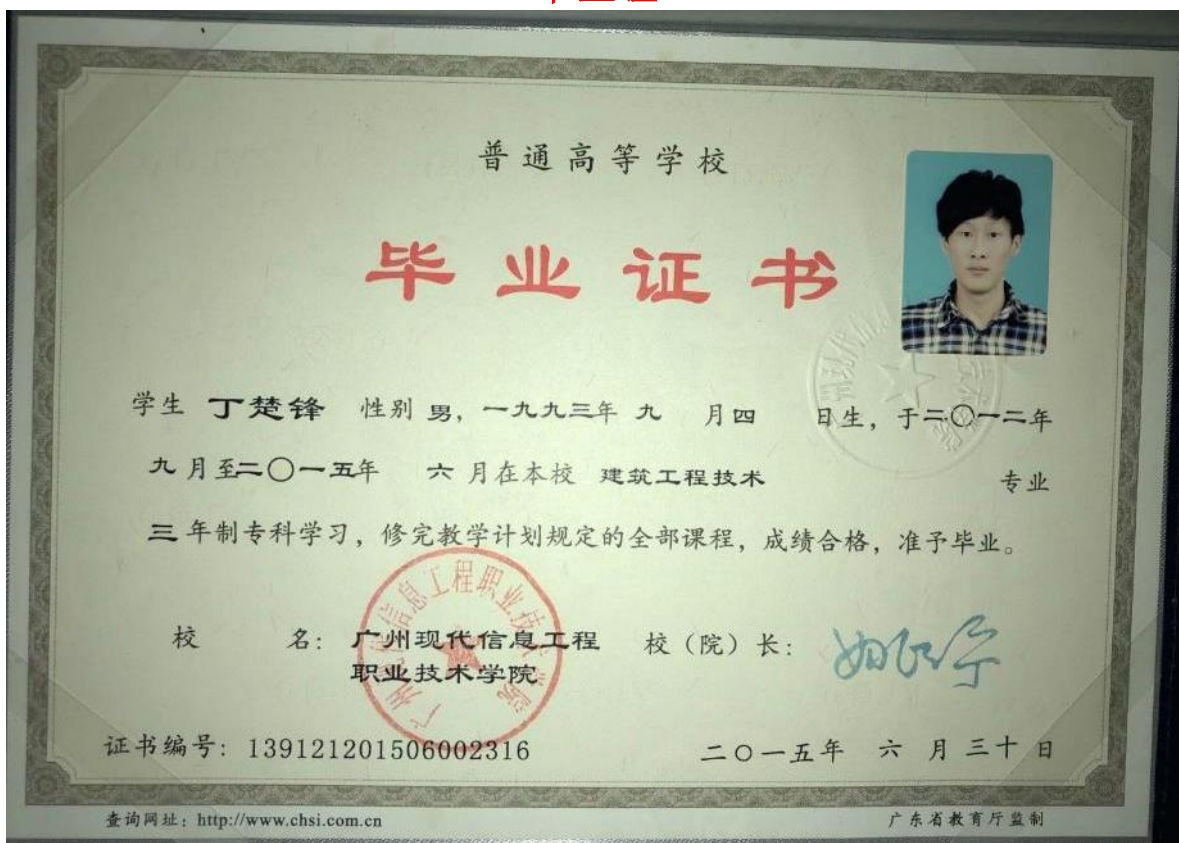 普通高等学校
毕业证书
学生 丁楚锋 性别 男，一九九三年 九 月四 日生，于二〇一二年
九 月至二〇一五年 六 月在本校 建筑工程技术 专业
三 年制专科学习，修完教学计划规定的全部课程，成绩合格，准予毕业。
校 名： 广州现代信息工程 校（院）长：
职业技术学院
证书编号：139121201506002316 二〇一五年 六 月 三十 日
查询网址：http://www.chsi.com.cn 广东省教育厅监制